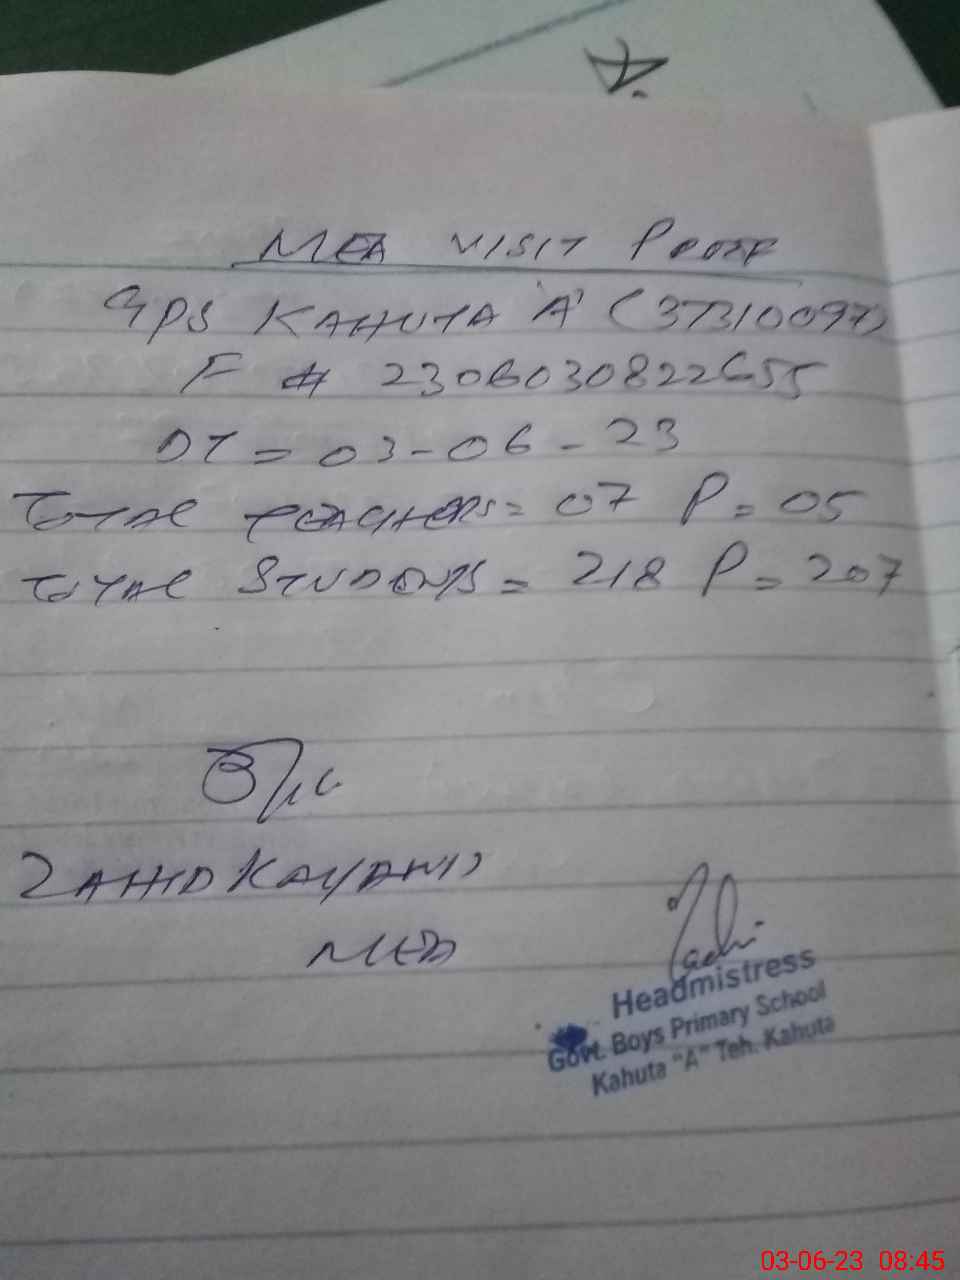 MEA VISIT PROOF
GPS KAHUTA 'A' (37310097)
F # 2306030822655
DT = 03-06-23
TOTAL TEACHERS = 07 P = 05
TOTAL STUDENTS = 218 P = 207
ZAHID KAYANI
MEA
Headmistress
Govt. Boys Primary School
Kahuta "A" Teh. Kahuta
03-06-23 08:45